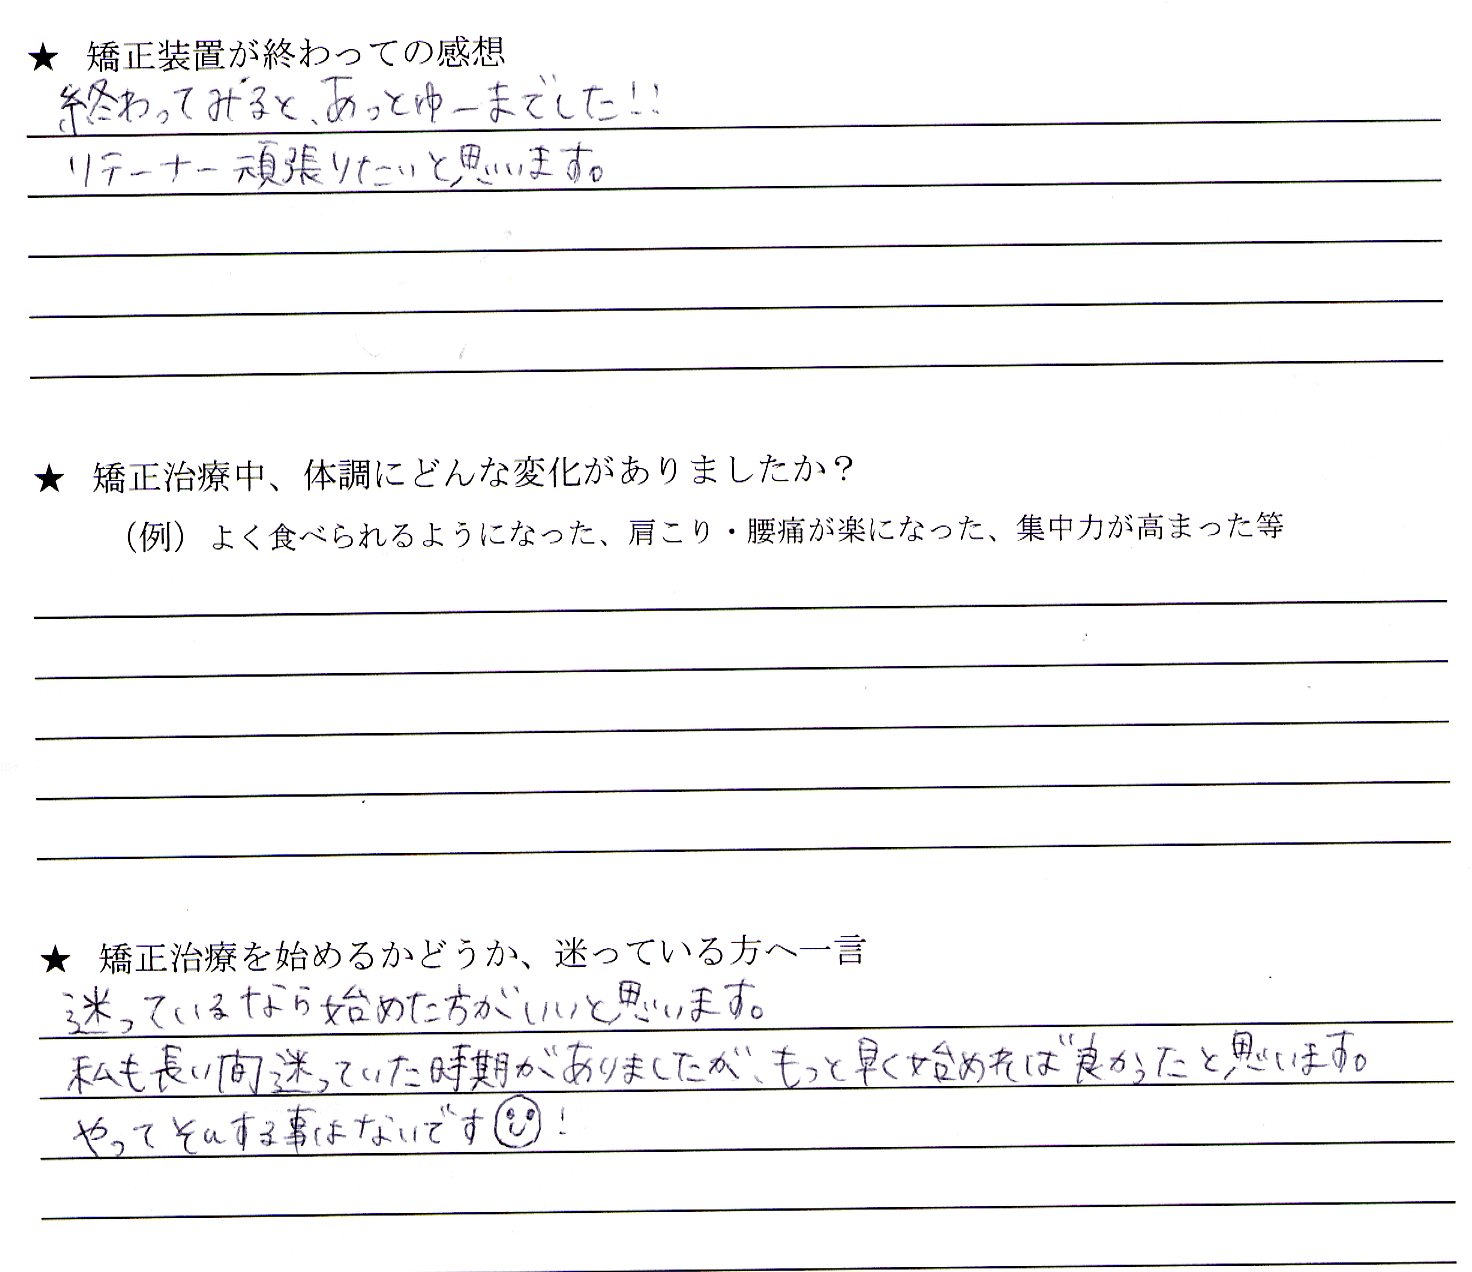 ★ 矯正装置が終わっての感想
終わってみると、あっとゆーまでした!!
リテーナー頑張りたいと思います。
★ 矯正治療中、体調にどんな変化がありましたか？
（例）よく食べられるようになった、肩こり・腰痛が楽になった、集中力が高まった等
★ 矯正治療を始めるかどうか、迷っている方へ一言
迷っているなら始めた方がいいと思います。
私も長い間迷っていた時期がありましたが、もっと早く始めれば良かったと思います。
やってそんする事はないです☺!